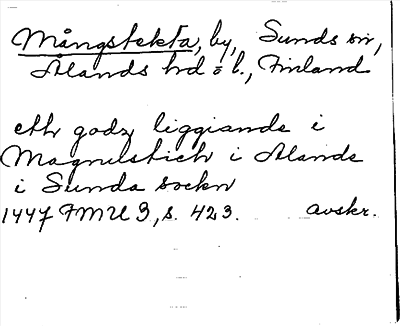 Mångstekta, by, Sunds sn,
Ålands hd o l., Finland
eth godz liggiande i
Magnusstich i Alande
i Sunda sockn
1447 FMU 3, s. 423. avskr.